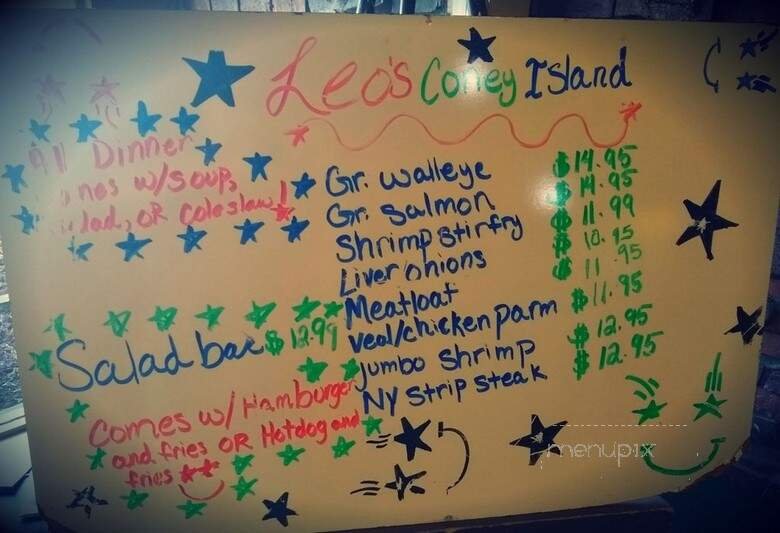 Leo's Coney Island
All Dinner
w/soup,
OR Coleslaw!
Gr. walleye $14.95
Gr. Salmon $14.95
Shrimp stirfry $11.99
Liver onions $10.95
Meatloaf $11.95
veal/chicken parm $11.95
Jumbo shrimp $12.95
NY Strip steak $12.95
Salad bar $12.99
Comes w/ Hamburger
and fries OR Hotdog and
fries
menupix